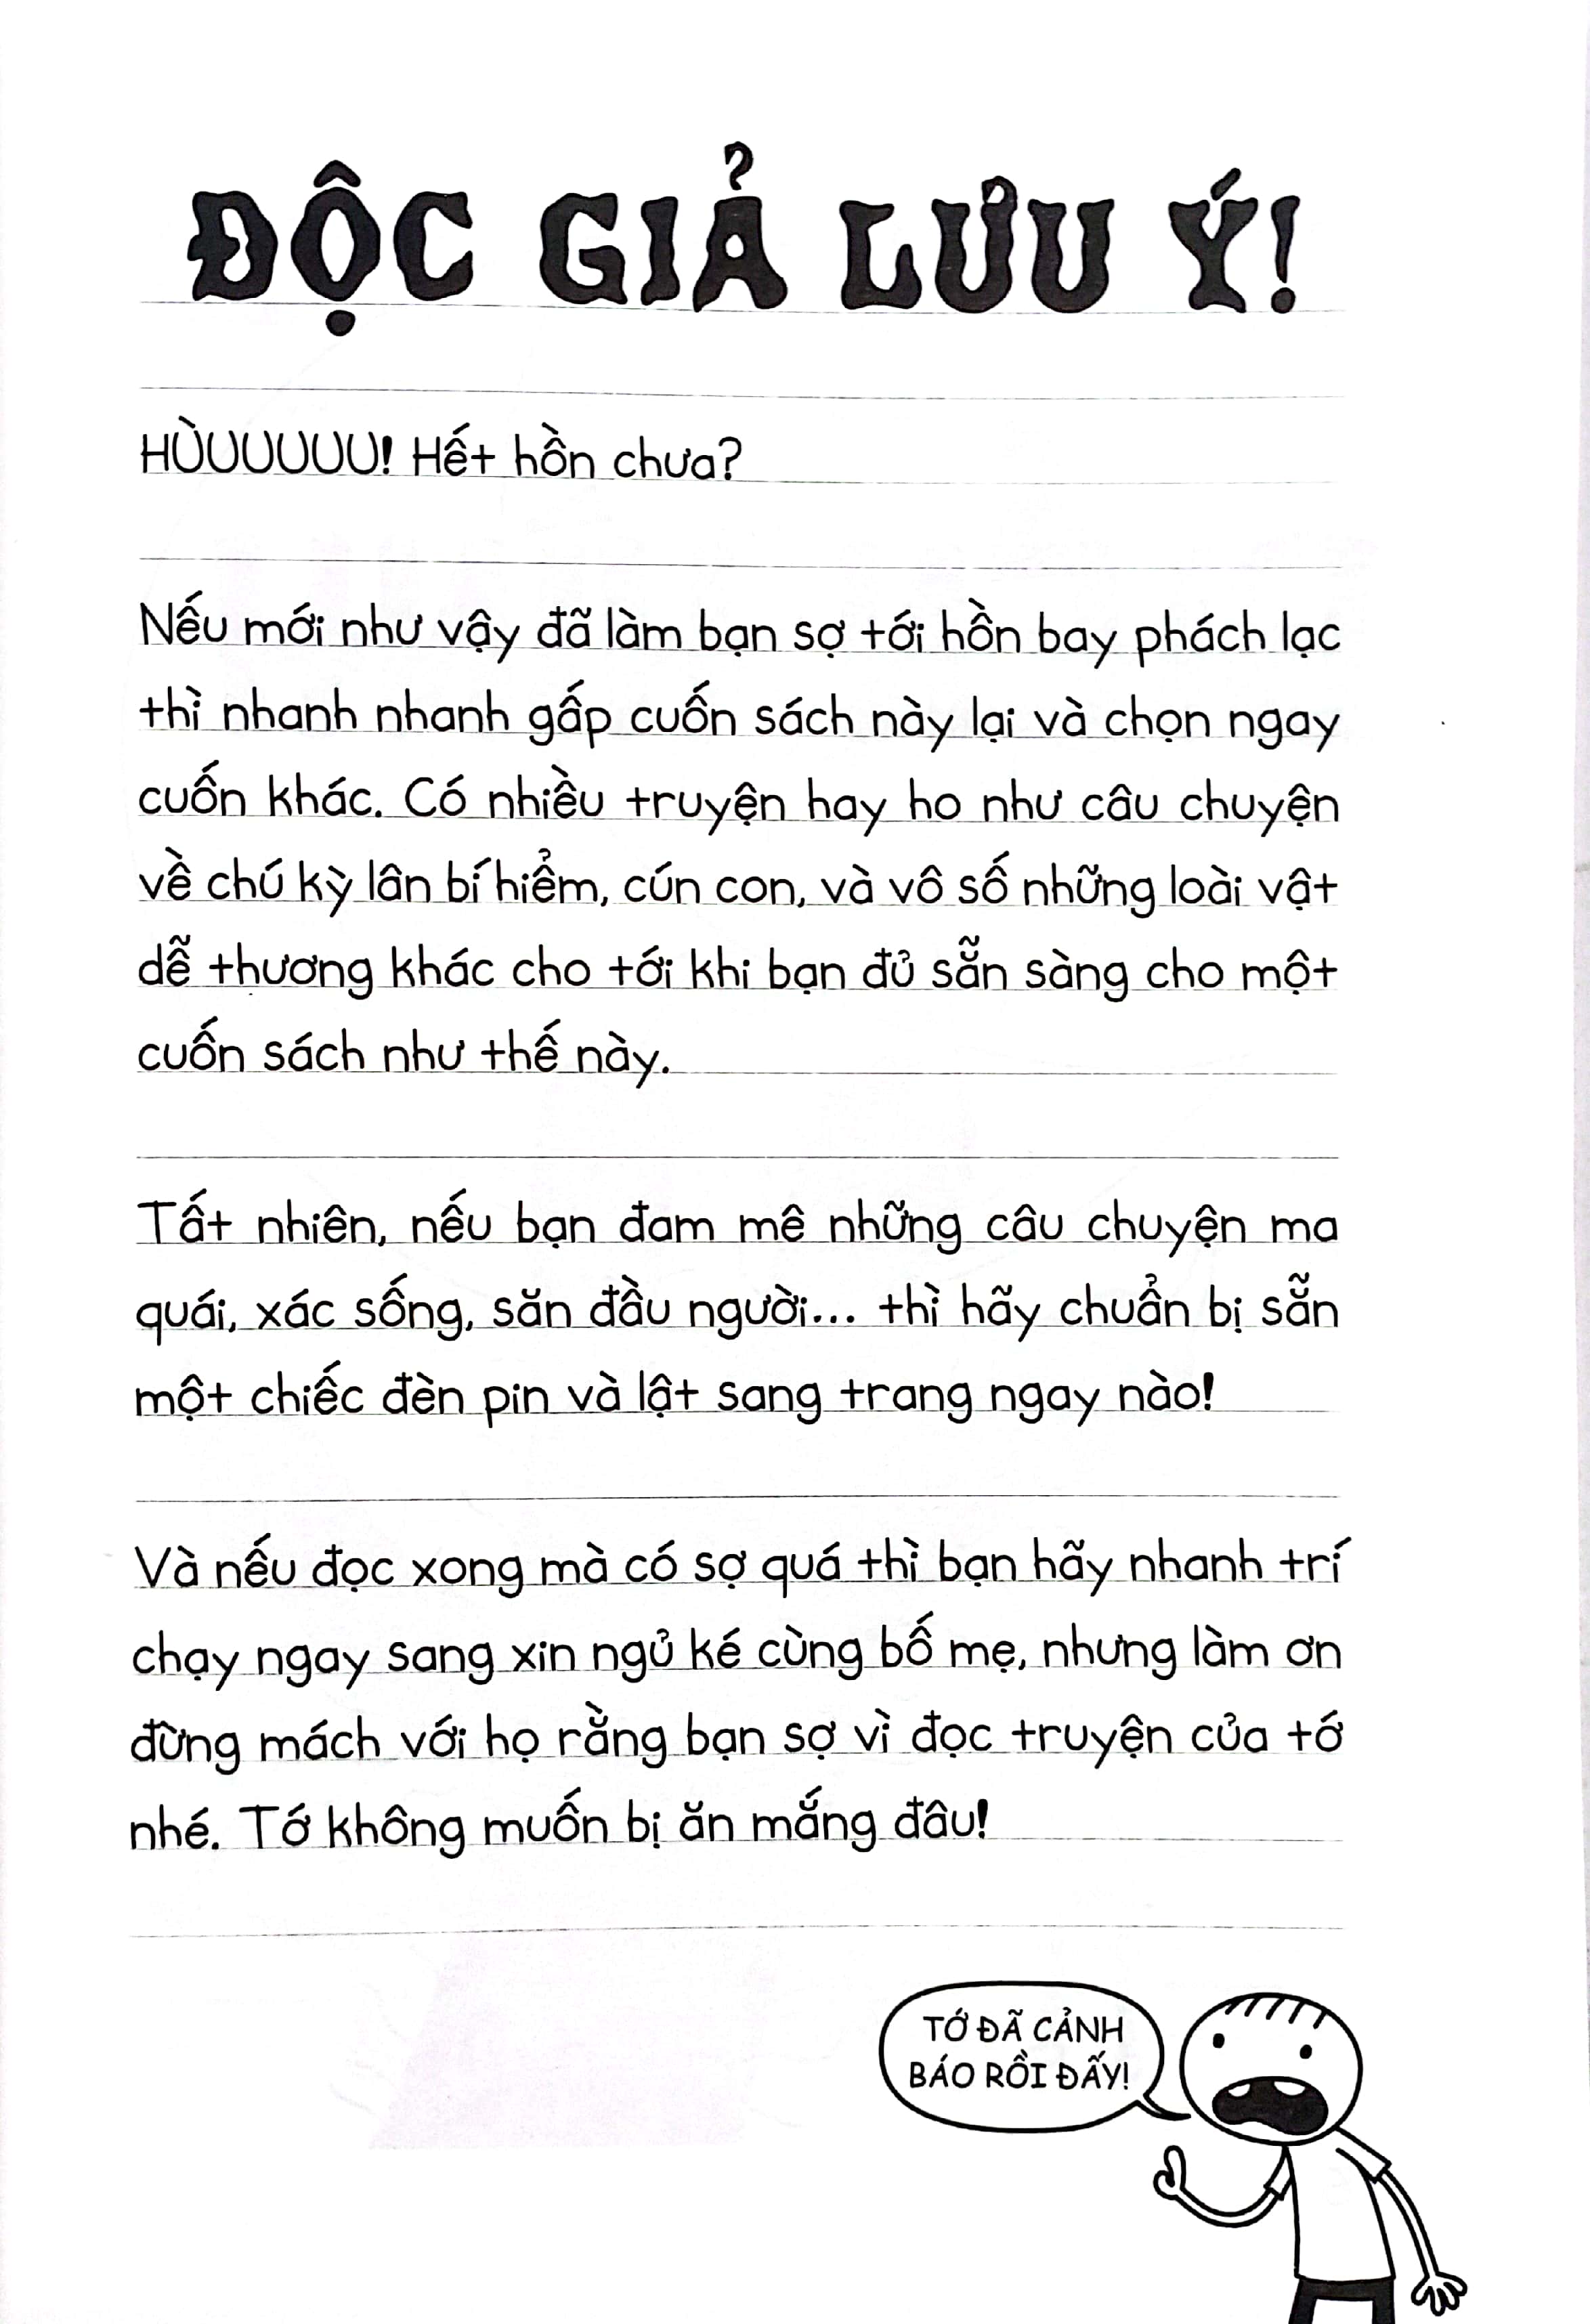 ĐỘC GIẢ LƯU Ý!
HÙUUUUUU! Hết hồn chưa?
Nếu mới như vậy đã làm bạn sợ tới hồn bay phách lạc
thì nhanh nhanh gấp cuốn sách này lại và chọn ngay
cuốn khác. Có nhiều truyện hay ho như câu chuyện
về chú kỳ lân bí hiểm, cún con, và vô số những loài vật
dễ thương khác cho tới khi bạn đủ sẵn sàng cho một
cuốn sách như thế này.
Tất nhiên, nếu bạn đam mê những câu chuyện ma
quái, xác sống, săn đầu người... thì hãy chuẩn bị sẵn
một chiếc đèn pin và lật sang trang ngay nào!
Và nếu đọc xong mà có sợ quá thì bạn hãy nhanh trí
chạy ngay sang xin ngủ ké cùng bố mẹ, nhưng làm ơn
đừng mách với họ rằng bạn sợ vì đọc truyện của tớ
nhé. Tớ không muốn bị ăn mắng đâu!
TỚ ĐÃ CẢNH
BÁO RỒI ĐẤY!